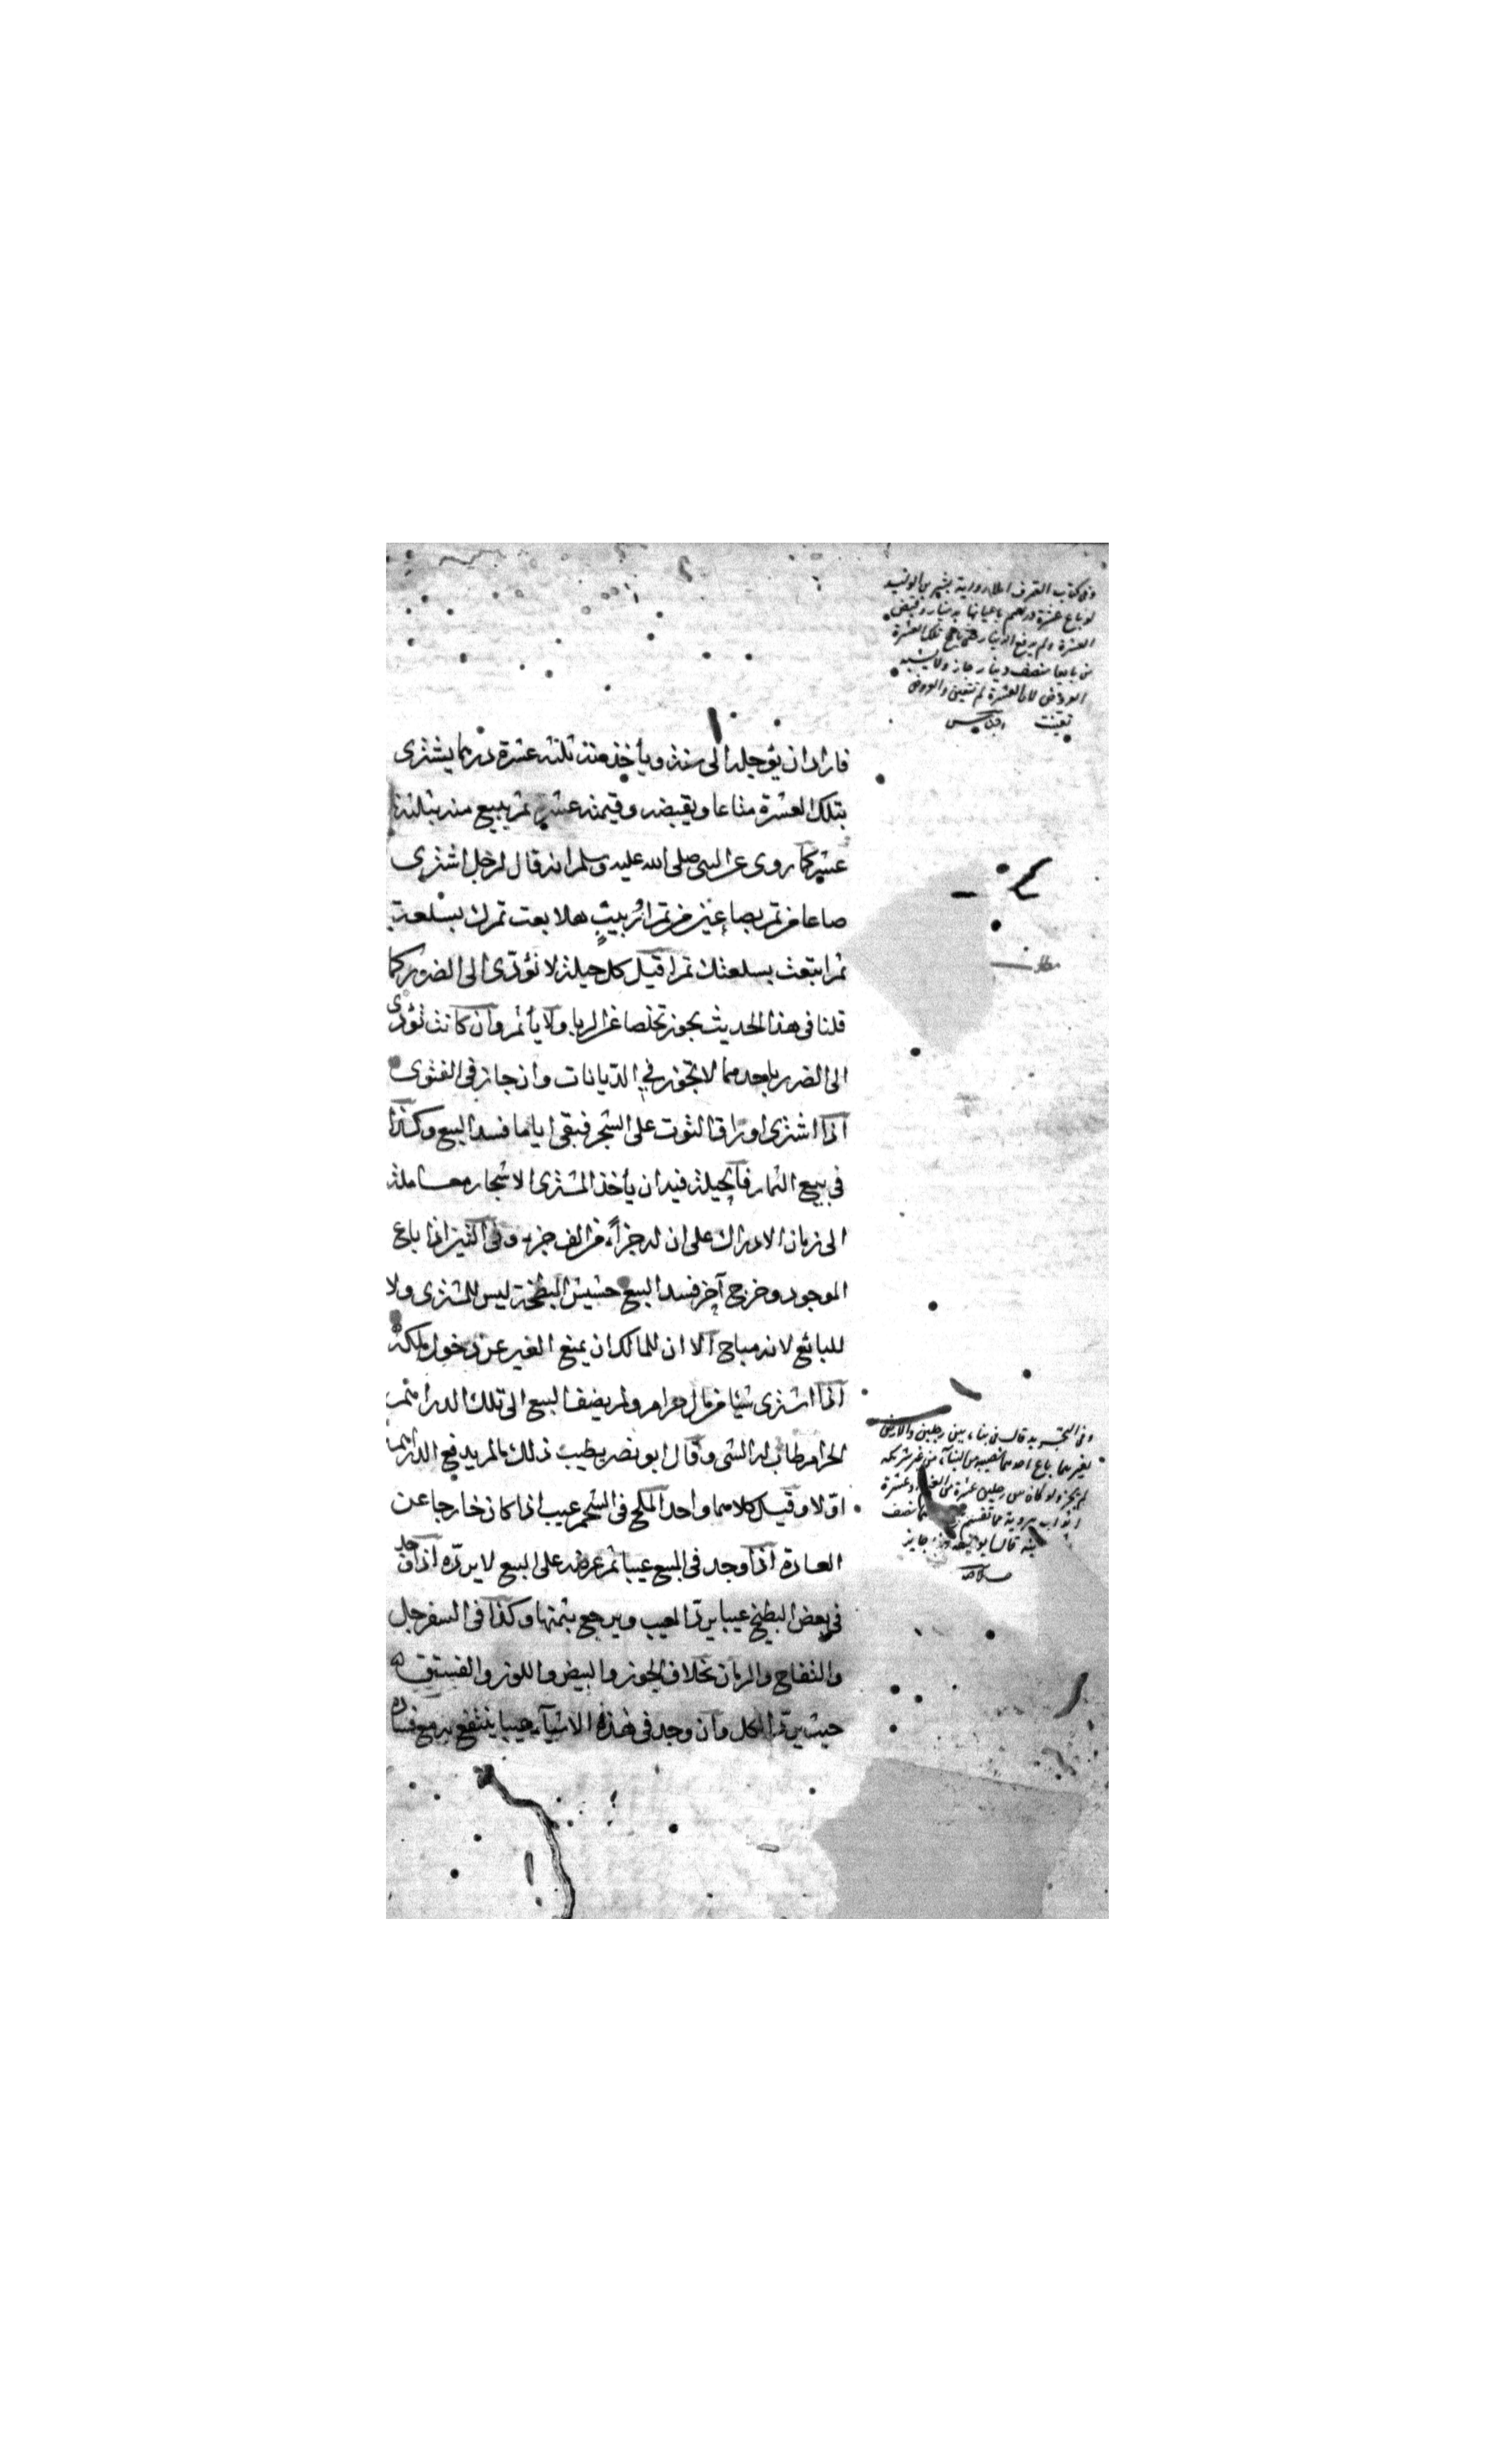 وفى كتاب الصرف املاء رواية بشر بن الوليد
لو باع عشرة دراهم باعيانها بدينار وقبض
العشرة ولم يدفع الدينار حتى باع تلك العشرة
من بايعها بنصف دينار جاز ولا يشبه
العروض لان العشرة لم تتعين والعروض
تعينت
فاراد ان يؤجله الى سنة ويأخذ منه ثلثة عشرة درهما يشترى
بتلك العشرة متاعا ويقبضه وقيمته عشرة ثم يبيع منه بثلثة
عشر كما روى عن النبى صلى الله عليه وسلم انه قال لرجل اشترى
صاعا من تمر بصاعين من تمر اربيت هلا بعت تمرك بسلعة
ثم ابتعت بسلعتك تمرا قيل كل حيلة لا تؤدّى الى الضرر كما
قلنا فى هذا الحديث يجوز تخلصا عن الربا ولا يأثم وان كانت تؤدى
الى الضرر باحدهما لا تجوز فى الدّيانات وان جاز فى الفتوى
اذا اشترى اوراق التوت على الشجر فبقى اياما فسد البيع وكذا
فى بيع الثمار فالحيلة فيه ان يأخذ المشترى الاشجار معاملة
الى زمان الادراك على ان له جزأ من الف جزء وفى التين اذا باع
الموجود وخرج آخر فسد البيع حشيش البطخة ليس للمشترى ولا
للبائع لانه مباح الا ان للمالك ان يمنع الغير عن دخول ملكه
اذا اشترى شيئا من مال حرام ولم يضف البيع الى تلك الدراهم
الحرام طاب له الشى وقال ابو نصر يطيب ذلك ما لم يدفع الدراهم
اوّلا وقيل كلاهما واحد الملح فى الشحم عيب اذا كان خارجا عن
العادة اذا وجد فى المبيع عيبا ثم عرضه على البيع لا يردّه اذا وجد
فى بعض البطيخ عيبا يردّ المعيب ويرجع بثمنها وكذا فى السفرجل
والتفاح والرمان بخلاف الجوز والبيض واللوز والفستق
حيث يردّ الكل وان وجد فى هذه الاشياء عيبا ينتفع به مع فساده
فى التجريد قال فى بناء بين رجلين والارض
لغيرهما باع احدهما نصيبه من البناء من غير شريكه
لم يجز ولو كان بين رجلين عشرة من الغنم او عشرة
اثواب هروية مما تقسم